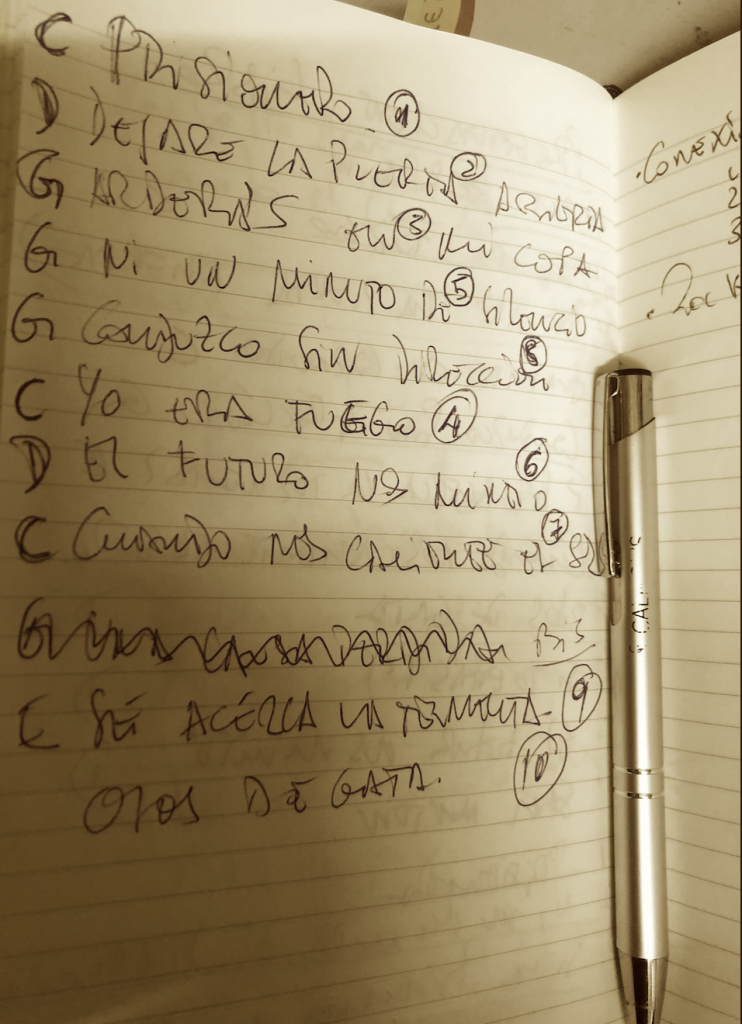 C PRISIONERO. 1
D DEJARE LA PUERTA 2 ABIERTA
G ARDERÁS EN 3 MI COPA
G NI UN MINUTO DE 5 SILENCIO
G CONDUZCO SIN DIRECCIÓN 8
C YO ERA FUEGO 4
D EL FUTURO NOS MINTIÓ 6
C CUANDO NOS CALIENTE EL SOL 7
G BIS
E SÉ ACÉRCA LA TORMENTA. 9
OJOS DE GATA. 10
.CONEXI
2
3
.ROCK
CAL